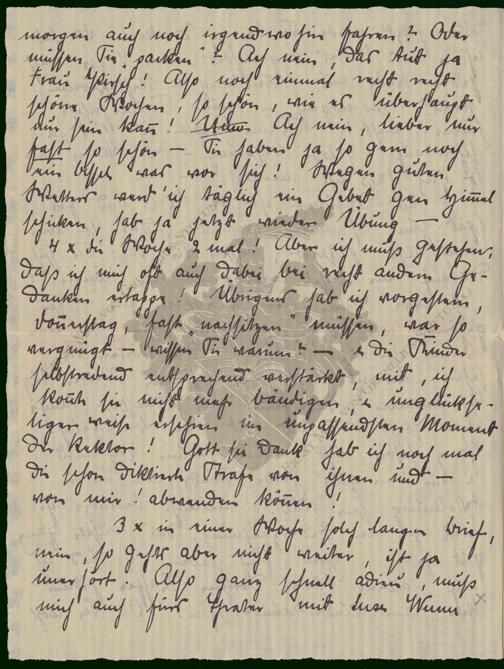 morgen auch noch irgendwohin fahren? Oder
müssen Sie „packen“? Ach nein, das tut ja
Frau Hirsch! Also noch einmal recht recht
schöne Wochen, so schön, wie es überhaupt
nur sein kann! Ach nein, lieber nur
fast so schön — Sie haben ja so gern noch
ein bissl was vor sich! Wegen guten
Wetters werd' ich täglich ein Gebet gen Himmel
schicken, hab ja jetzt wieder Übung —
4 x die Woche 2 mal! Aber ich muß gestehen,
daß ich mich oft auch dabei bei recht andern Ge-
danken ertappe! Übrigens hab ich vorgestern,
Donnerstag, fast „nachsitzen“ müssen, war so
vergnügt — wissen Sie warum? — & die Kinder
selbstredend entsprechend verstärkt, mit, ich
konnte sie nicht mehr bändigen, & unglückse-
liger weise erschien im unpassendsten Moment
der Rektor! Gott sei Dank hab ich noch mal
die schon diktierte Strafe von ihnen und —
von mir! abwenden können!
3 x in einer Woche solch langen Brief,
nein, so gehts aber nicht weiter, ist ja
unerhört. Also ganz schnell adieu, muß
mich auch fürs Theater mit